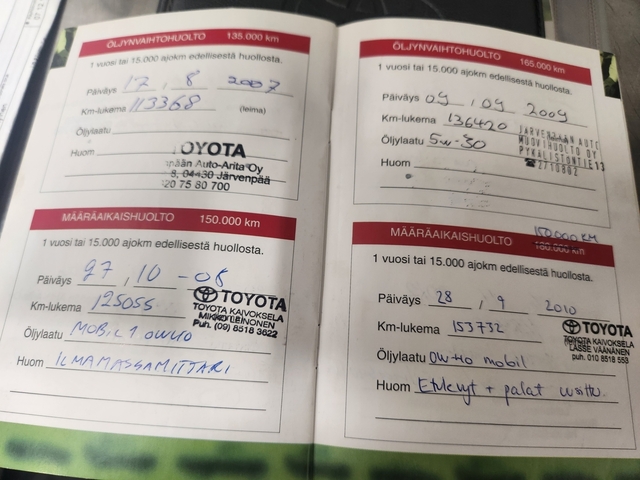 ÖLJYNVAIHTOHUOLTO 135.000 km
1 vuosi tai 15.000 ajokm edellisestä huollosta.
Päiväys 17 . 8 2007
Km-lukema 113368 (leima)
Öljylaatu
Huom
TOYOTA
Auto-Arita Oy
8, 04430 Järvenpää
020 75 80 700
MÄÄRÄAIKAISHUOLTO 150.000 km
1 vuosi tai 15.000 ajokm edellisestä huollosta.
Päiväys 27 , 10 - 08
Km-lukema 125055
Öljylaatu MOBIL 1 0W40
Huom ILMAMASSAMITTARI
TOYOTA
TOYOTA KAIVOKSELA
MIKKO LEINONEN
Puh. (09) 8518 3622
ÖLJYNVAIHTOHUOLTO 165.000 km
1 vuosi tai 15.000 ajokm edellisestä huollosta.
Päiväys 09 , 09 2009
Km-lukema 136420
Öljylaatu 5w-30
Huom
JÄRVENPÄÄN AUTO
MUOVIHUOLTO OY
PYKÄLISTÖNTIE 13
☎ 2710802
150.000 KM
MÄÄRÄAIKAISHUOLTO 180.000 km
1 vuosi tai 15.000 ajokm edellisestä huollosta.
Päiväys 28 , 9 2010
Km-lukema 153732
Öljylaatu 0w-40 mobil
Huom Etulevyt + palat uusittu
TOYOTA
TOYOTA KAIVOKSELA
LASSE VÄÄNÄNEN
puh. 010 8518 553